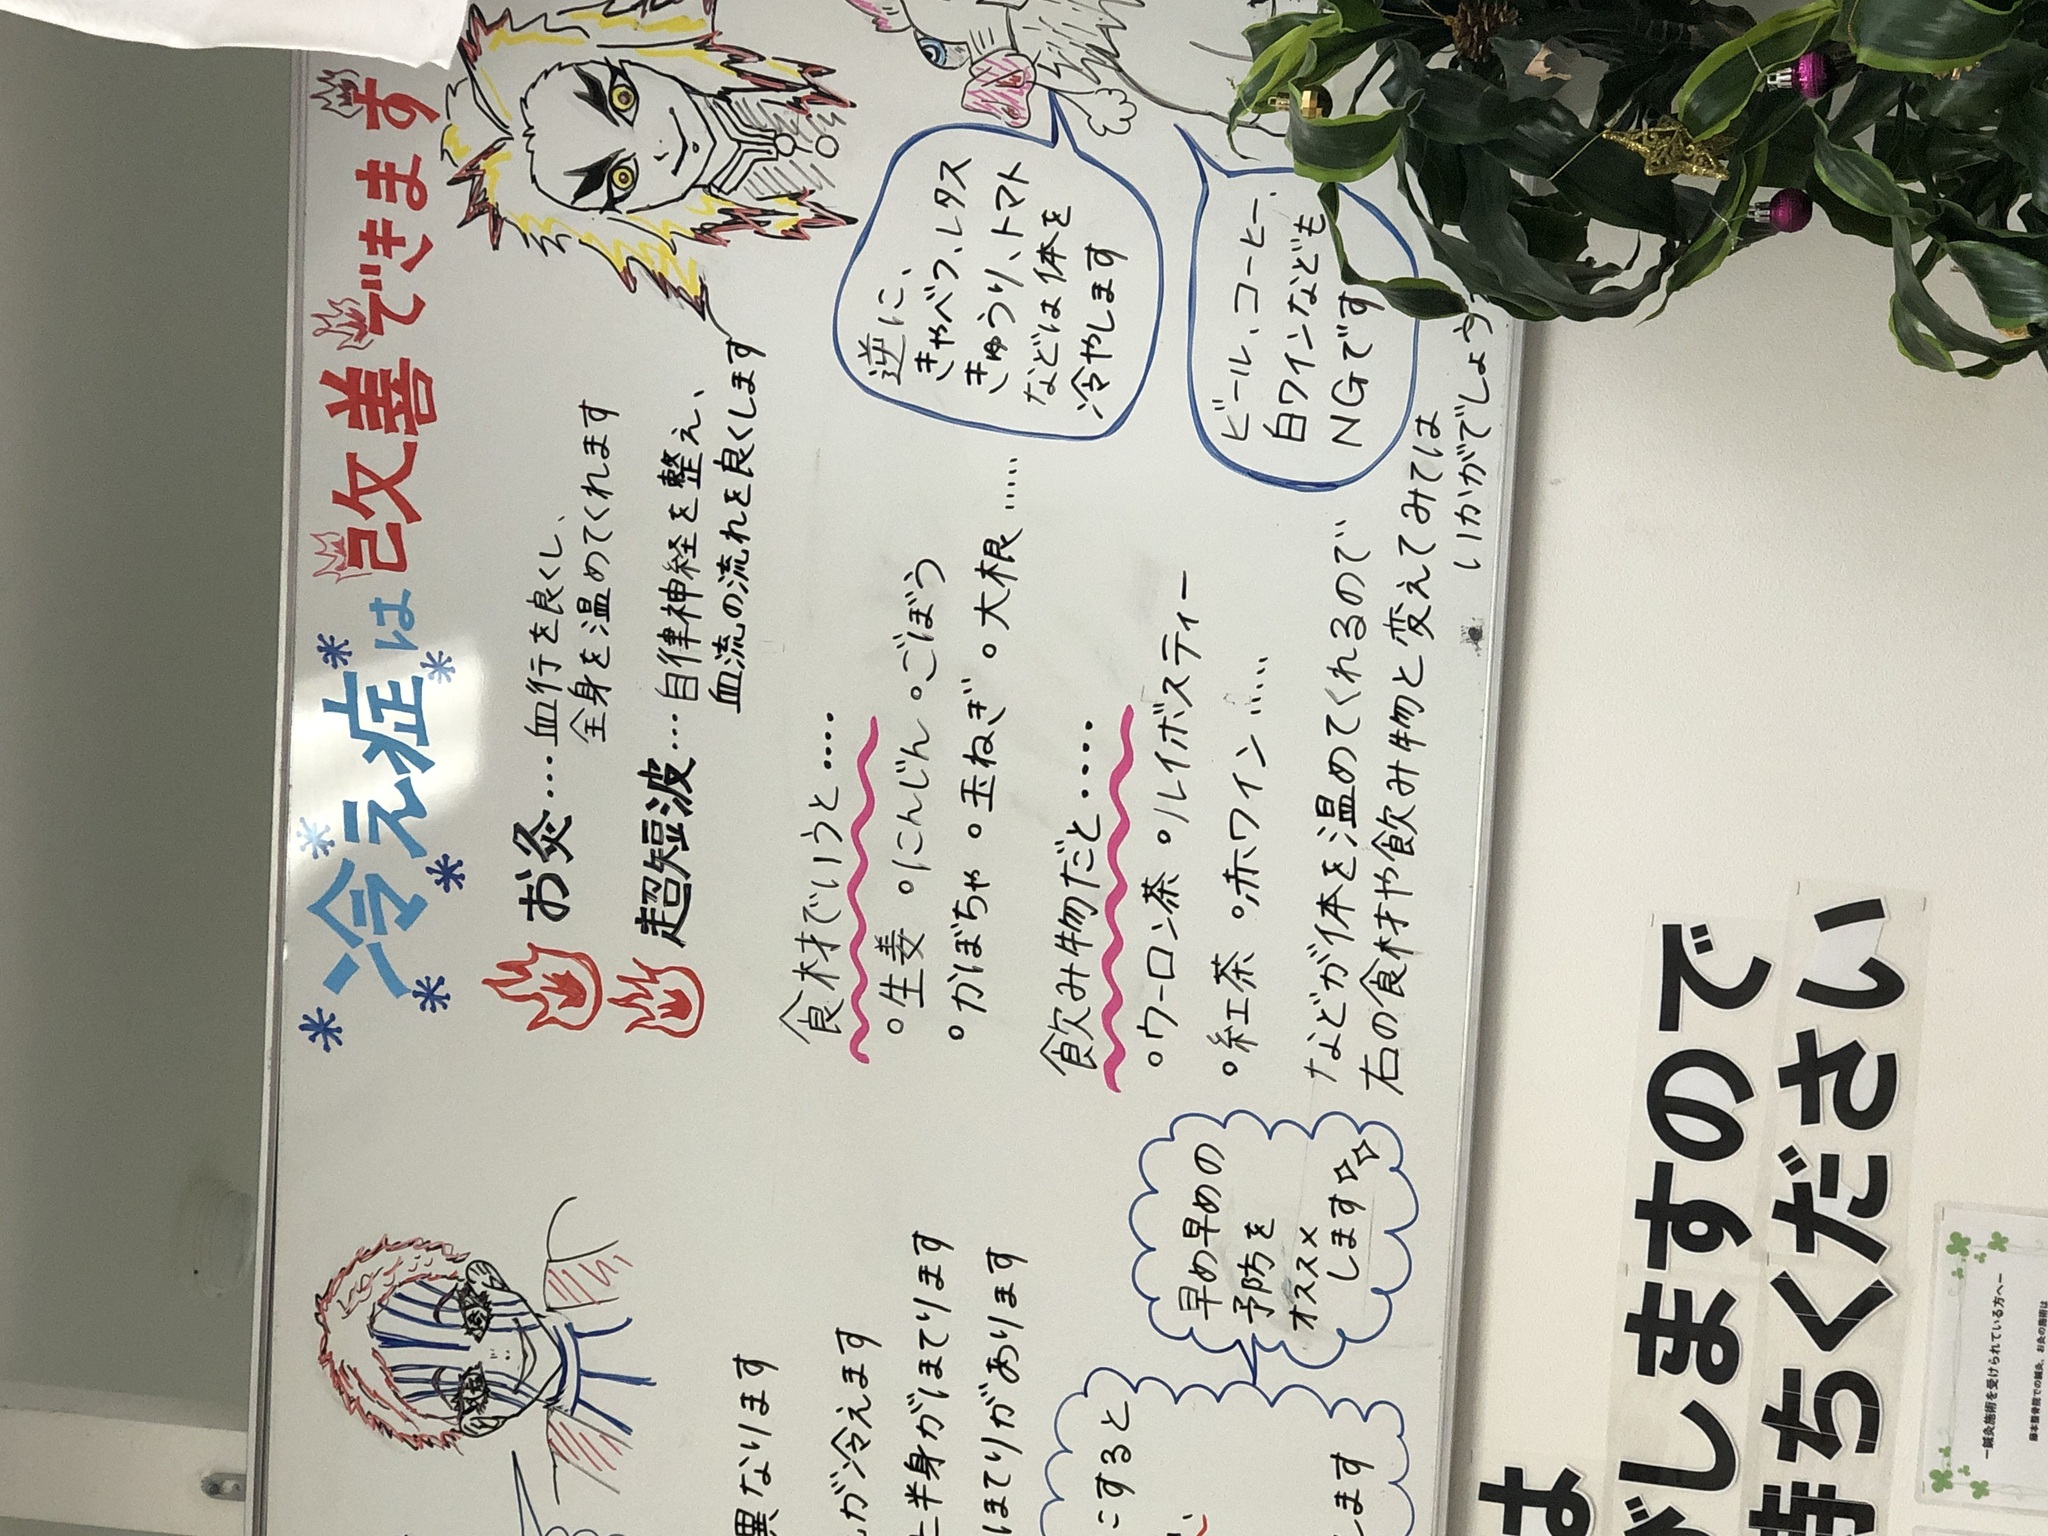 冷え症は改善できます
お灸…血行を良くし、
全身を温めてくれます
超短波…自律神経を整え、
血流の流れを良くします
食材でいうと….
°生姜 °にんじん °ごぼう
°かぼちゃ °玉ねぎ °大根……
飲み物だと…..
°ウーロン茶 °ルイボスティー
°紅茶 °赤ワイン……
などが体を温めてくれるので
右の食材や飲み物と変えてみては
いかがでしょう
逆に、
きゃべつ、レタス
きゅうり、トマト
などは体を
冷やします
ビール、コーヒー、
白ワインなども
NGです
異なります
が冷えます
半身がほてります
ほてりがあります
こすると
します
早め早めの
予防を
オススメ
します☆☆
は
がしますので
待ちください
ー鍼灸施術を受けられている方へー
藤本整骨院での鍼灸、お灸の施術は